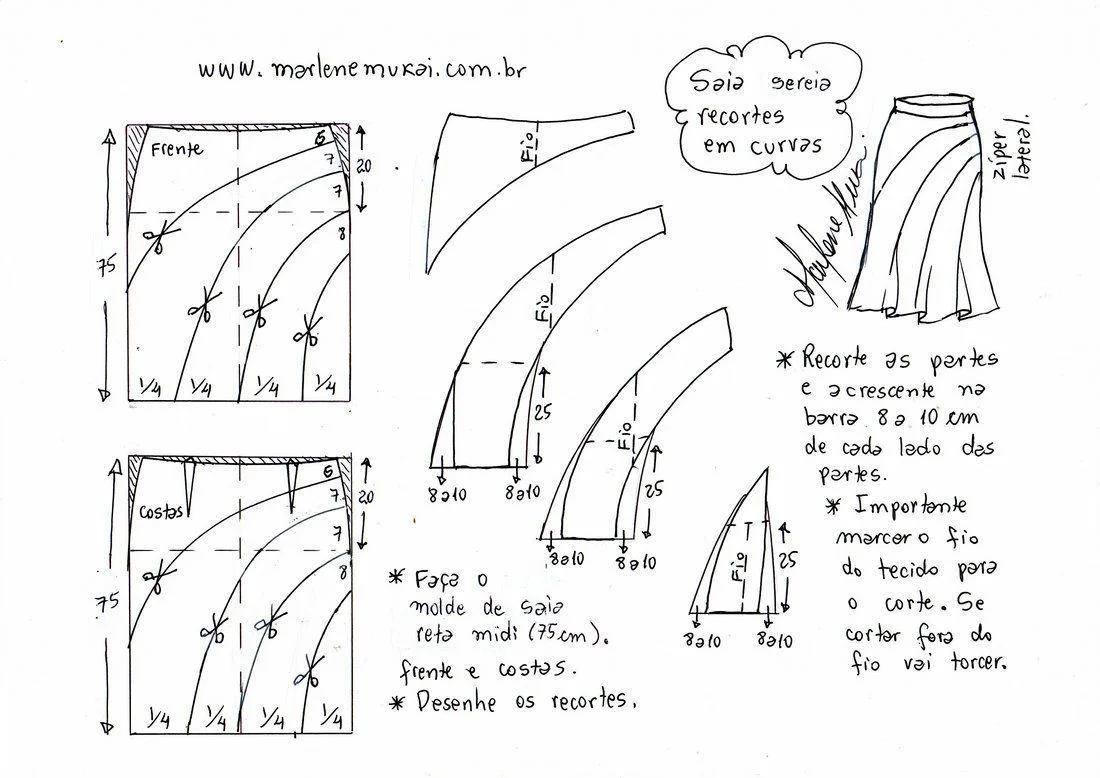 www.marlenemukai.com.br
Saia sereia
recortes
em curvas
zíper
lateral.
Marlene Mukai
Frente
6
7
7
8
20
75
1/4 1/4 1/4 1/4
Costas
6
7
7
8
20
75
1/4 1/4 1/4 1/4
Fio
Fio
25
8a10 8a10
Fio
25
8a10 8a10
Fio
25
8a10 8a10
* Faça o
molde de saia
reta midi (75cm).
frente e costas.
* Desenhe os recortes.
* Recorte as partes
e acrescente na
barra 8 a 10 cm
de cada lado das
partes.
* Importante
marcar o fio
do tecido para
o corte. Se
cortar fora do
fio vai torcer.